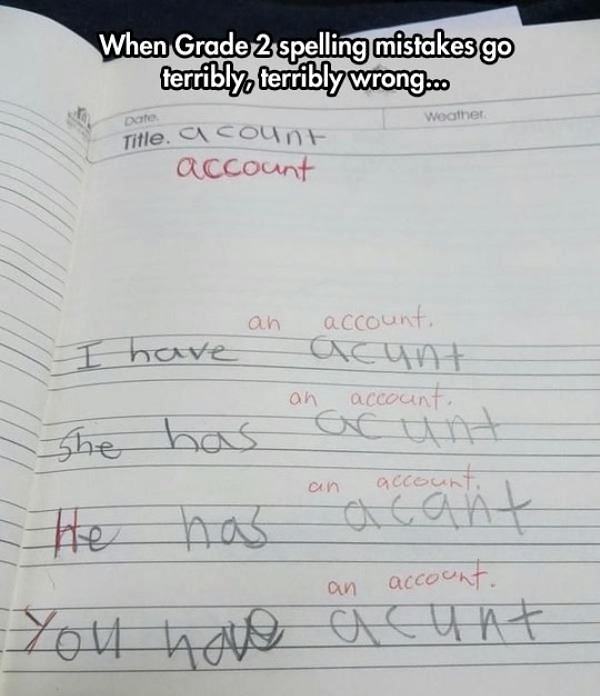 When Grade 2 spelling mistakes go
terribly, terribly wrong...
Date.
Weather.
Title. acount
account
an account.
I have acunt
an account.
She has acunt
an account.
He has acant
an account.
You have acunt